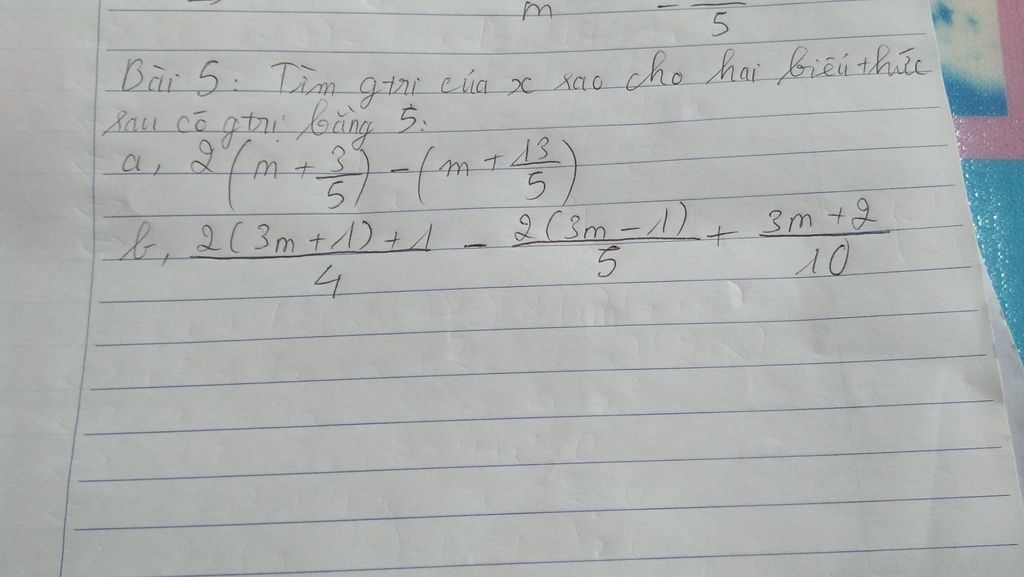 m - 5
Bài 5: Tìm gtrị của x sao cho hai biểu thức
sau có gtrị bằng 5:
a, 2(m + 3/5) - (m + 13/5)
b, 2(3m + 1) + 1 / 4 - 2(3m - 1) / 5 + 3m + 2 / 10